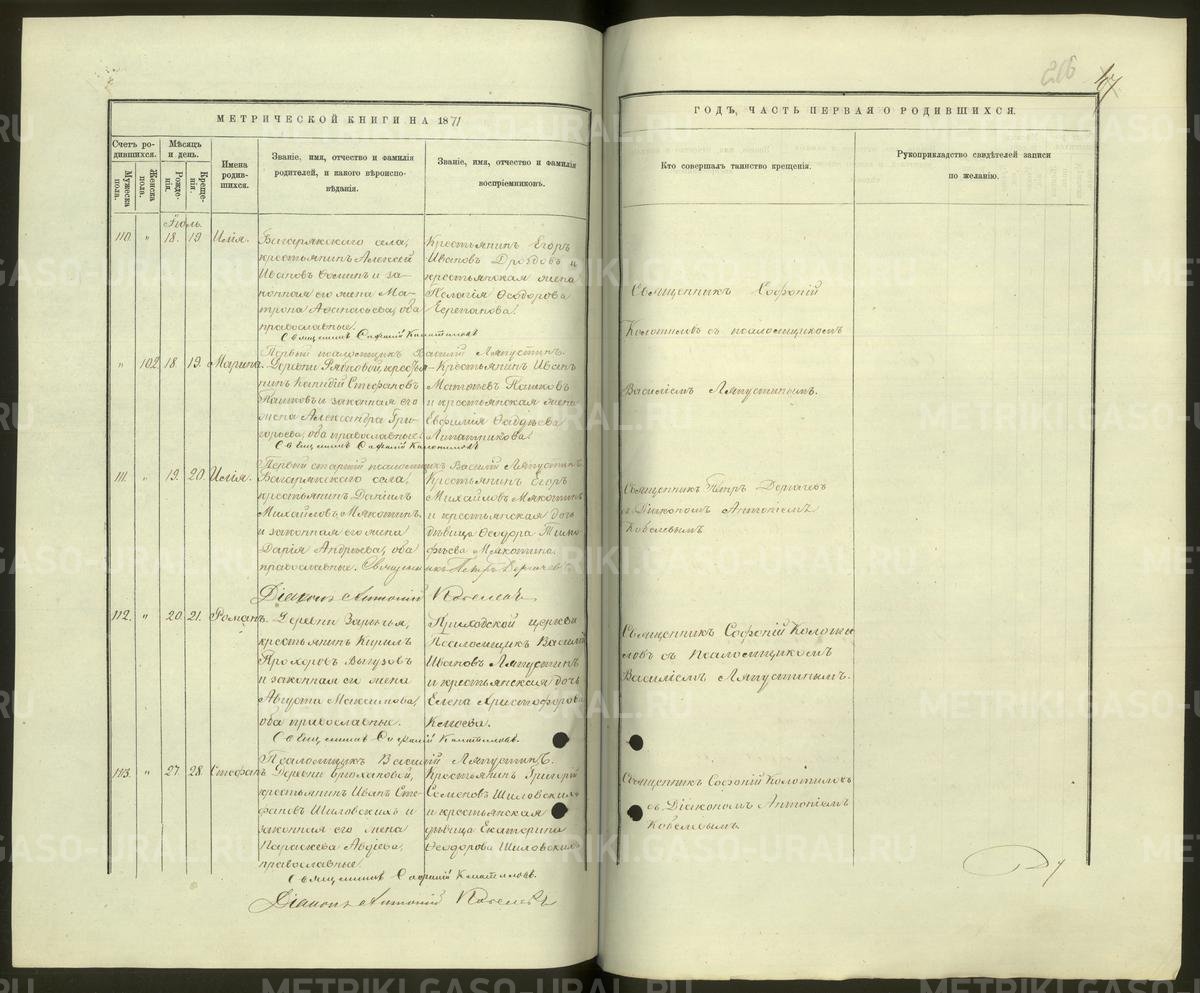 МЕТРИЧЕСКОЙ КНИГИ НА 1871
Счетъ родившихся.
Мужеска пола.
Женска пола.
Мѣсяцъ и день.
Рожденія.
Крещенія.
Имена родившихся.
Званіе, имя, отчество и фамилія
родителей, и какого вѣроиспо-
вѣданія.
Званіе, имя, отчество и фамилія
воспріемниковъ.
Іюль.
110. " 18. 19 Илія.
Багарякскаго села,
крестьянинъ Алексѣй
Ивановъ и за-
конная его жена Ма-
трона Аѳанасьева, оба
православные.
Крестьянинъ Егоръ
Ивановъ Дроздовъ и
крестьянская жена
Пелагія Ѳеодорова
Священникъ Софоній Колотиловъ
Первый псаломщикъ Василій Ляпустинъ.
" 102 18. 19. Марина.
Деревни крестья-
нинъ Стефановъ
Пашковъ и законная его
жена Александра Гри-
горьева, оба православные.
Крестьянинъ Иванъ
Матвѣевъ Пашковъ
и крестьянская жена
Евфимія
Священникъ Софоній Колотиловъ
Первый старшій псаломщикъ Василій Ляпустинъ.
111. " 19. 20. Илія.
Багарякскаго села,
крестьянинъ Даніилъ
Михайловъ Мякотинъ
и законная его жена
Дарія Андреева, оба
православные.
Крестьянинъ Егоръ
Михайловъ Мякотинъ
и крестьянская дочь
дѣвица Ѳеодора Тимо
фѣева Мякотина
Священникъ Петръ Дергачевъ
Діаконъ Антоній Ковелевъ
112. " 20. 21. Романъ.
Деревни Зарѣчья,
крестьянинъ Кирилъ
Прохоровъ Выгузовъ
и законная его жена
Августа Максимова,
оба православные.
Приходской церкви
Псаломщикъ Василій
Ивановъ Ляпустинъ
и крестьянская дочь
Елена Христофорова
Священникъ Софоній Колотиловъ.
Псаломщикъ Василій Ляпустинъ.
113. " 27. 28. Стефанъ.
Деревни
крестьянинъ Иванъ Сте-
фановъ Шиловскихъ и
законная его жена
Параскева Авдіева,
православные.
Крестьянинъ Григорій
Семеновъ Шиловскихъ
и крестьянская
дѣвица Екатерина
Ѳеодорова Шиловскихъ
Священникъ Софоній Колотиловъ.
Діаконъ Антоній Ковелевъ
206
ГОДЪ, ЧАСТЬ ПЕРВАЯ О РОДИВШИХСЯ.
Кто совершалъ таинство крещенія.
Рукоприкладство свидѣтелей записи
по желанію.
Священникъ Софоній
Колотиловъ съ псаломщикомъ
Василіемъ Ляпустинымъ.
Священникъ Петръ Дергачевъ
съ Діакономъ Антоніемъ
Ковелевымъ
Священникъ Софоній Колоти
ловъ съ Псаломщикомъ
Василіемъ Ляпустинымъ.
Священникъ Софоній Колотиловъ
съ Діакономъ Антоніемъ
Ковелевымъ
METRIKI.GASO-URAL.RU